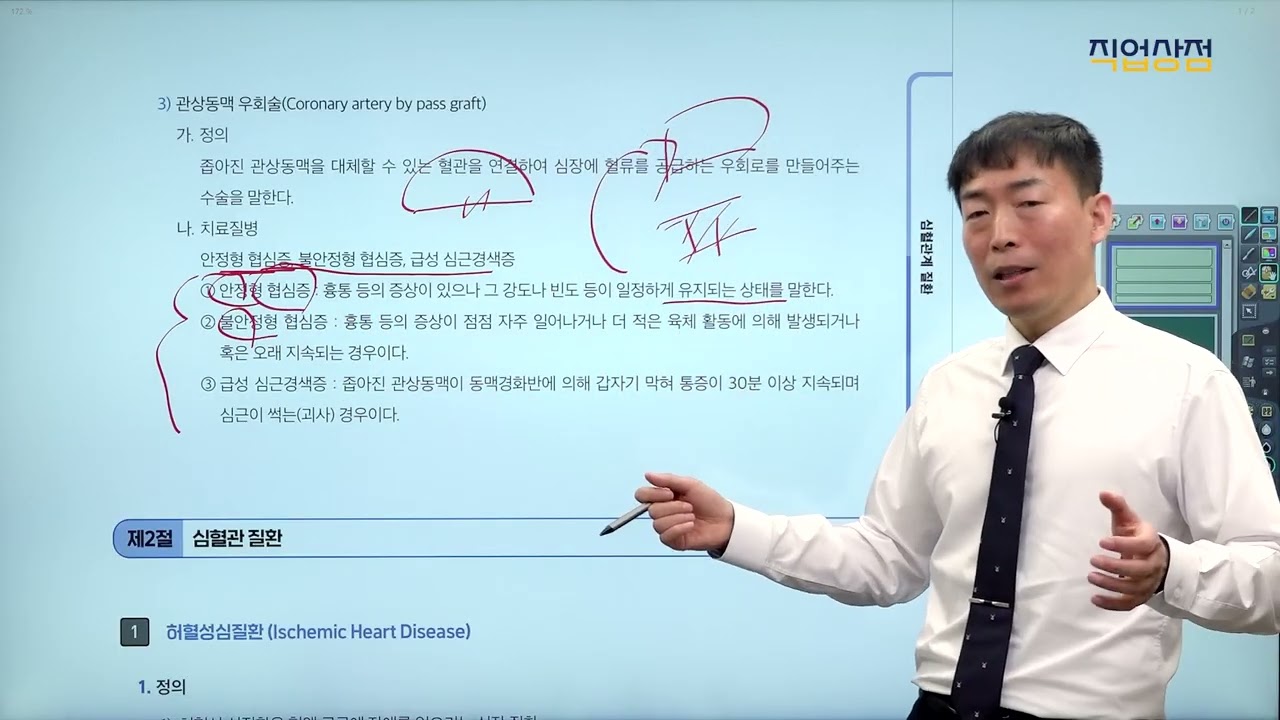 직업상점
3) 관상동맥 우회술(Coronary artery by pass graft)
가. 정의
좁아진 관상동맥을 대체할 수 있는 혈관을 연결하여 심장에 혈류를 공급하는 우회로를 만들어주는
수술을 말한다.
나. 치료질병
안정형 협심증, 불안정형 협심증, 급성 심근경색증
① 안정형 협심증 : 흉통 등의 증상이 있으나 그 강도나 빈도 등이 일정하게 유지되는 상태를 말한다.
② 불안정형 협심증 : 흉통 등의 증상이 점점 자주 일어나거나 더 적은 육체 활동에 의해 발생되거나
혹은 오래 지속되는 경우이다.
③ 급성 심근경색증 : 좁아진 관상동맥이 동맥경화반에 의해 갑자기 막혀 통증이 30분 이상 지속되며
심근이 썩는(괴사) 경우이다.
심혈관계 질환
제2절 심혈관 질환
1 허혈성심질환 (Ischemic Heart Disease)
1. 정의